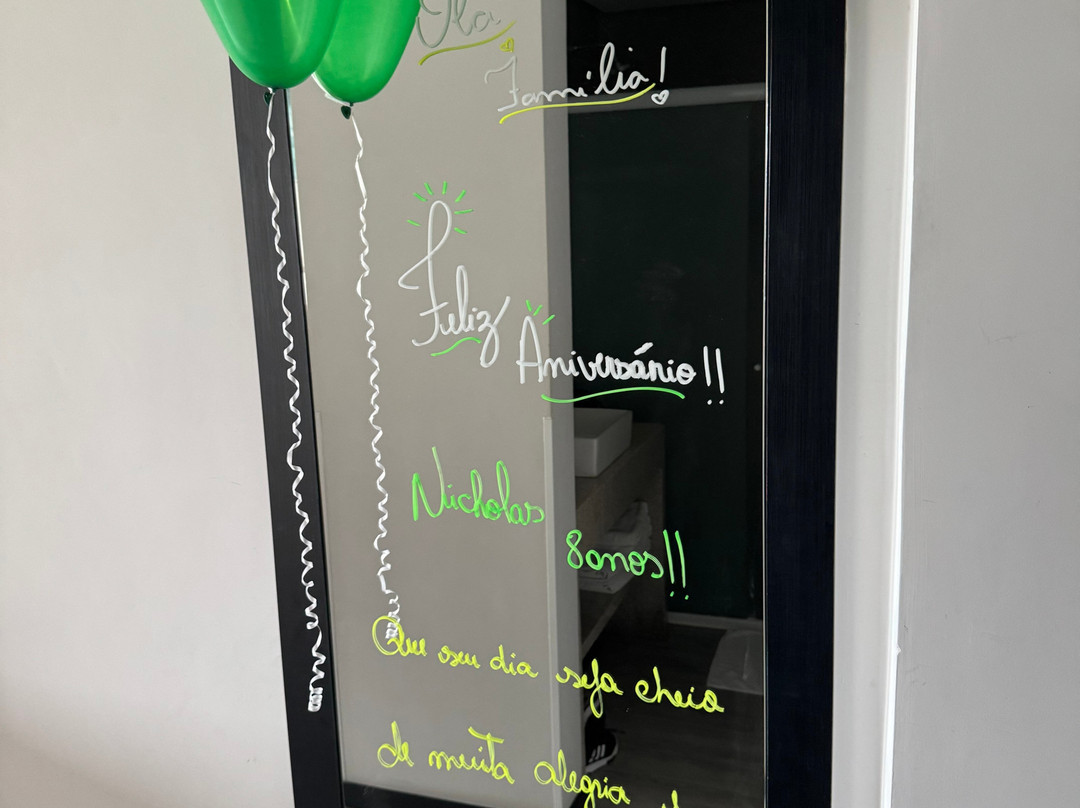 Ola
Familia!
Feliz
Aniversário!!
Nicholas
8anos!!
Que seu dia seja cheio
de muita alegria